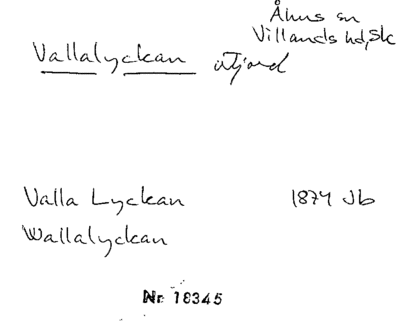 Åhus sn
Villands hd, Sk
Vallalyckan utjord
Valla Lyckan 1874 Jb
Wallalyckan
Nr 18345